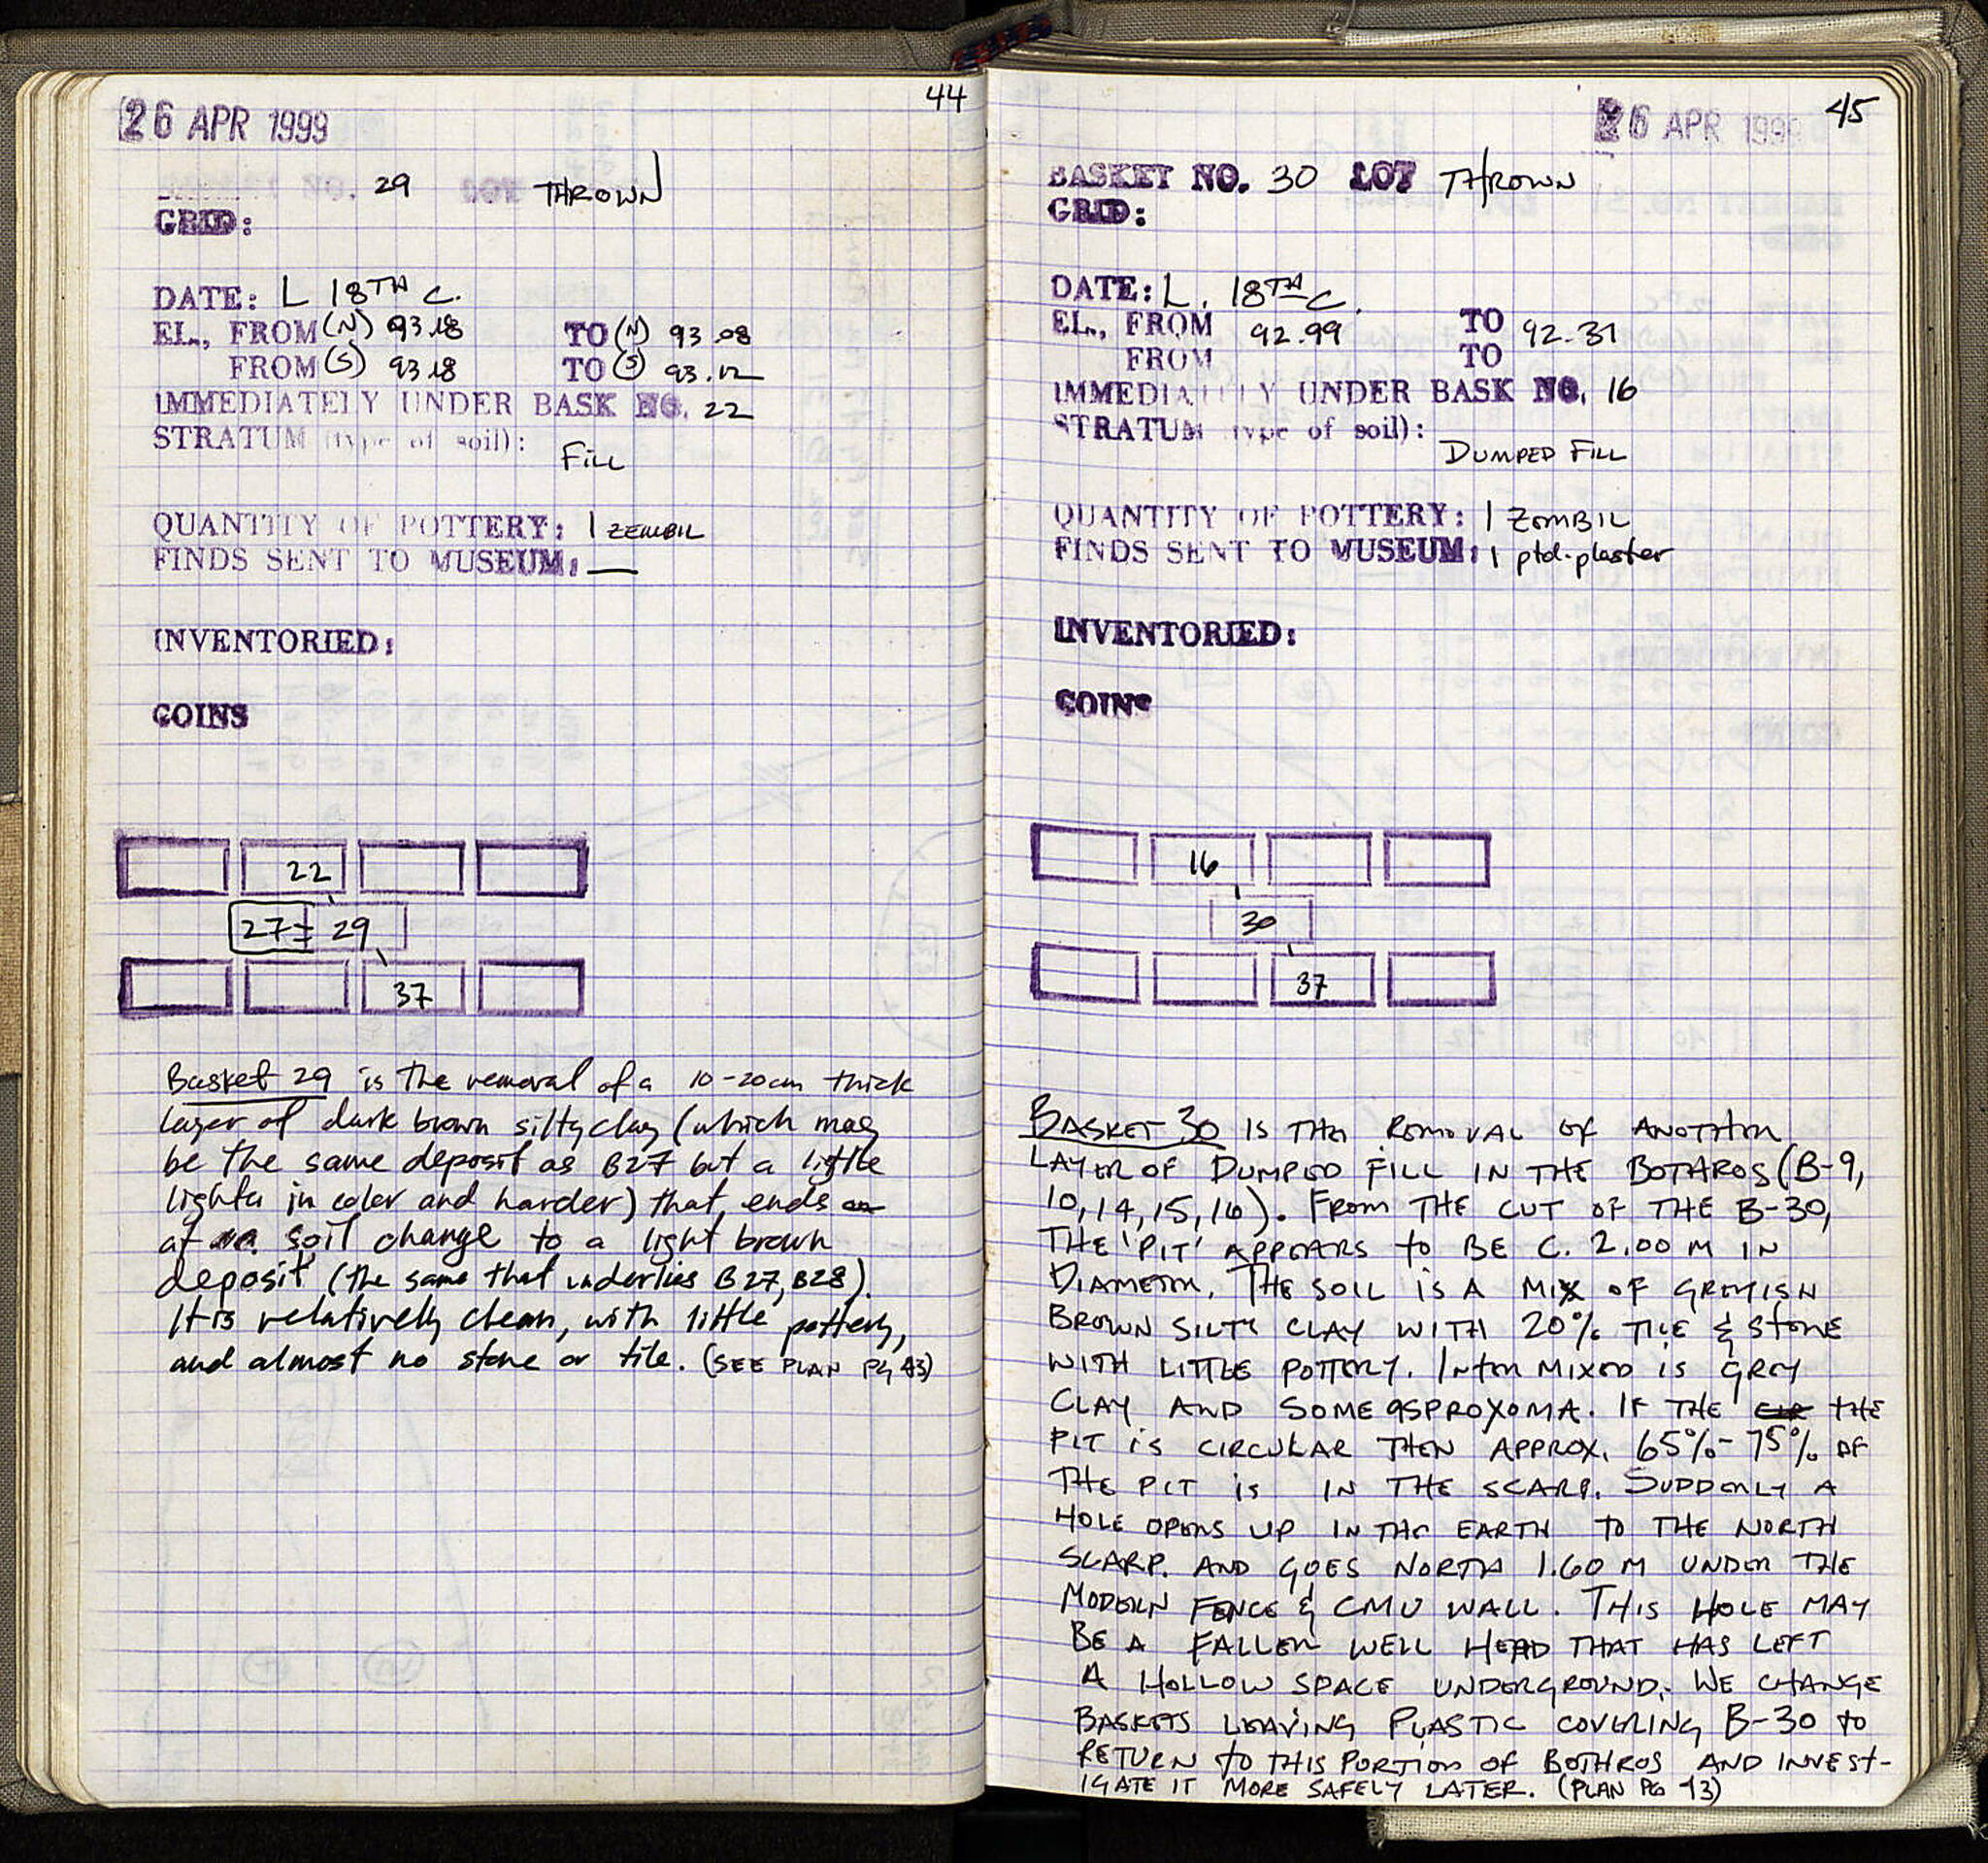 44
26 APR 1999
29 LOT THROWN
GRID:
DATE: L 18TH C.
EL., FROM (N) 93.18 TO (N) 93.08
FROM (S) 93.18 TO (S) 93.12
IMMEDIATELY UNDER BASK NO. 22
STRATUM (type of soil):
FILL
QUANTITY OF POTTERY: 1 ZEMBIL
FINDS SENT TO MUSEUM: —
INVENTORIED:
COINS
22
27 = 29
37
Basket 29 is the removal of a 10-20cm thick
layer of dark brown silty clay (which may
be the same deposit as B27 but a little
lighter in color and harder) that ends
at soil change to a light brown
deposit (the same that underlies B27, B28).
It is relatively clean, with little pottery,
and almost no stone or tile. (SEE PLAN PG 43)
45
26 APR 1999
BASKET NO. 30 LOT THROWN
GRID:
DATE: L. 18TH C.
EL., FROM 92.99 TO 92.31
FROM TO
IMMEDIATELY UNDER BASK NO. 16
STRATUM (type of soil):
DUMPED FILL
QUANTITY OF POTTERY: 1 ZEMBIL
FINDS SENT TO MUSEUM: 1 ptd. plaster
INVENTORIED:
COINS
16
30
37
BASKET 30 IS THE REMOVAL OF ANOTHER
LAYER OF DUMPED FILL IN THE BOTHROS (B-9,
10, 14, 15, 16). FROM THE CUT OF THE B-30,
THE 'PIT' APPEARS TO BE C. 2.00 M IN
DIAMETER. THE SOIL IS A MIX OF GREYISH
BROWN SILTY CLAY WITH 20% TILE & STONE
WITH LITTLE POTTERY. INTERMIXED IS GREY
CLAY AND SOME ASPROXOMA. IF THE THE
PIT IS CIRCULAR THEN APPROX. 65%-75% OF
THE PIT IS IN THE SCARP. SUDDENLY A
HOLE OPENS UP IN THE EARTH TO THE NORTH
SCARP. AND GOES NORTH 1.60 M UNDER THE
MODERN FENCE & CMU WALL. THIS HOLE MAY
BE A FALLEN WELL HEAD THAT HAS LEFT
A HOLLOW SPACE UNDERGROUND. WE CHANGE
BASKETS LEAVING PLASTIC COVERING B-30 TO
RETURN TO THIS PORTION OF BOTHROS AND INVEST-
IGATE IT MORE SAFELY LATER. (PLAN PG 43)